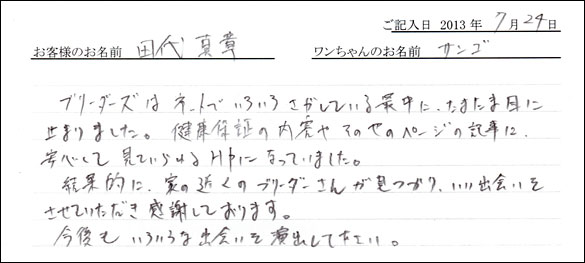 ご記入日 2013 年 7月 24日
お客様のお名前 田代 真章 ワンちゃんのお名前 サンゴ
ブリーダーズは ネットで いろいろ さがしている 最中に、たまたま目に
止まりました。健康保証の内容や その他のページの記事に、
安心して 見ていられるHPになっていました。
結果的に、家の近くのブリーダーさんが見つかり、いい出会いを
させていただき 感謝しております。
今後も いろいろな出会いを 演出して下さい。